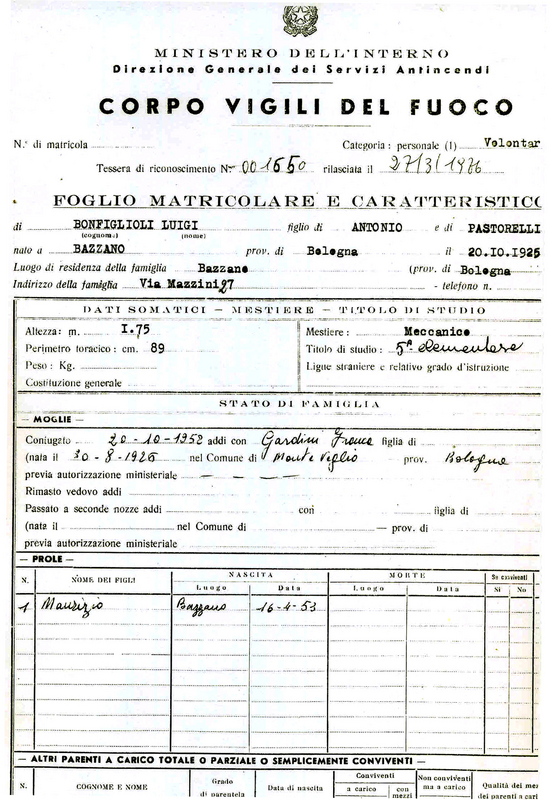 MINISTERO DELL'INTERNO
Direzione Generale dei Servizi Antincendi
CORPO VIGILI DEL FUOCO
N.° di matricola Categoria: personale (1) Volontar
Tessera di riconoscimento N.° 001650 rilasciata il 27/3/1976
FOGLIO MATRICOLARE E CARATTERISTICO
di BONFIGLIOLI LUIGI figlio di ANTONIO e di PASTORELLI
(cognome) (nome)
nato a BAZZANO prov. di Bologna il 20.10.1925
Luogo di residenza della famiglia Bazzano (prov. di Bologna
Indirizzo della famiglia Via Mazzini 27 - telefono n.
DATI SOMATICI - MESTIERE - TITOLO DI STUDIO
Altezza: m. I.75 Mestiere: Meccanico
Perimetro toracico: cm. 89 Titolo di studio: 5ª elementare
Peso: Kg. Ligue straniere e relativo grado d'istruzione
Costituzione generale
STATO DI FAMIGLIA
— MOGLIE —
Coniugato 20-10-1952 addi con Gardini Franca figlia di
(nata il 30-8-1926 nel Comune di Monteveglio prov. Bologna
previa autorizzazione ministeriale — — —
Rimasto vedovo addi
Passato a seconde nozze addi con figlia di
(nata il nel Comune di — prov. di
previa autorizzazione ministeriale
— PROLE —
N. NOME DEI FIGLI NASCITA MORTE Se conviventi
Luogo Data Luogo Data Si No
1 Maurizio Bazzano 16-4-53
— ALTRI PARENTI A CARICO TOTALE O PARZIALE O SEMPLICEMENTE CONVIVENTI —
N. COGNOME E NOME Grado di parentela Data di nascita Conviventi Non conviventi ma a carico Qualità dei mez
a carico con mezzi dei parenti a cari